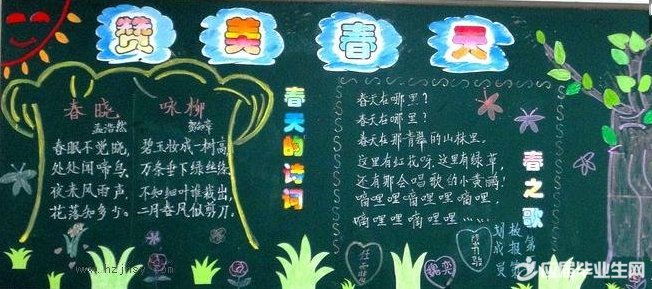 赞美春天
春晓
孟浩然
春眠不觉晓,
处处闻啼鸟,
夜来风雨声,
花落知多少。
咏柳
贺知章
碧玉妆成一树高,
万条垂下绿丝绦,
不知细叶谁裁出,
二月春风似剪刀。
春天的诗词
春天在哪里?
春天在哪里?
春天在那青翠的山林里,
这里有红花呀,这里有绿草,
还有那会唱歌的小黄鹂,
嘀哩哩嘀哩嘀哩哩,
嘀哩哩嘀哩哩……
春之歌
www.hzjhsy.com
应届毕业生网